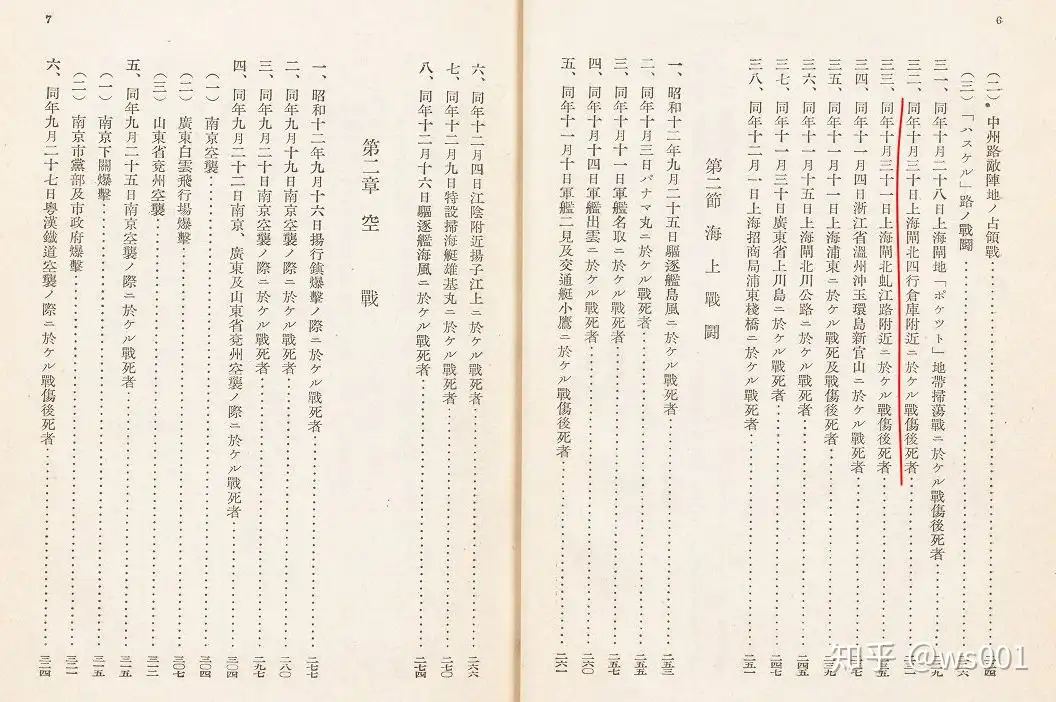 6
(二) 中州路敵陣地ノ占領戰
(三) 「ハスケル」路ノ戰鬪
三一、同年十月二十八日上海閘地「ポケツト」地帶掃蕩戰ニ於ケル戰傷後死者
三二、同年十月三十日上海閘北四行倉庫附近ニ於ケル戰傷後死者
三三、同年十月三十一日上海閘北虬江路附近ニ於ケル戰傷後死者
三四、同年十一月四日浙江省溫州沖玉環島新官山ニ於ケル戰死者
三五、同年十一月十一日上海浦東ニ於ケル戰死及戰傷後死者
三六、同年十一月十五日上海閘北川公路ニ於ケル戰死者
三七、同年十一月三十日廣東省上川島ニ於ケル戰死者
三八、同年十二月一日上海招商局浦東棧橋ニ於ケル戰死者 二五一
第二節 海上戰鬪
一、昭和十二年九月二十五日驅逐艦島風ニ於ケル戰死者 二五三
二、同年十月三日パナマ丸ニ於ケル戰死者 二五五
三、同年十月十一日軍艦名取ニ於ケル戰死者 二五七
四、同年十月十四日軍艦出雲ニ於ケル戰死者 二六〇
五、同年十一月十日軍艦二見及交通艇小鷹ニ於ケル戰傷後死者 二六一
7
六、同年十二月四日江陰附近揚子江上ニ於ケル戰死者 二六六
七、同年十二月九日特設掃海艇雄基丸ニ於ケル戰死者 二七〇
八、同年十二月十六日驅逐艦海風ニ於ケル戰死者 二七四
第二章 空戰
一、昭和十二年九月十六日揚行鎮爆擊ノ際ニ於ケル戰死者 二七七
二、同年九月十九日南京空襲ノ際ニ於ケル戰死者 二八〇
三、同年九月二十日南京空襲ノ際ニ於ケル戰死者 二九七
四、同年九月二十二日南京、廣東及山東省兗州空襲ノ際ニ於ケル戰死者 三〇四
(一) 南京空襲 三〇四
(二) 廣東白雲飛行場爆擊 三〇七
(三) 山東省兗州空襲 三一二
五、同年九月二十五日南京空襲ノ際ニ於ケル戰死者 三一五
(一) 南京下關爆擊 三一五
(二) 南京市黨部及市政府爆擊 三二一
六、同年九月二十七日粵漢鐵道空襲ノ際ニ於ケル戰傷後死者 三二四
知乎 @ws001